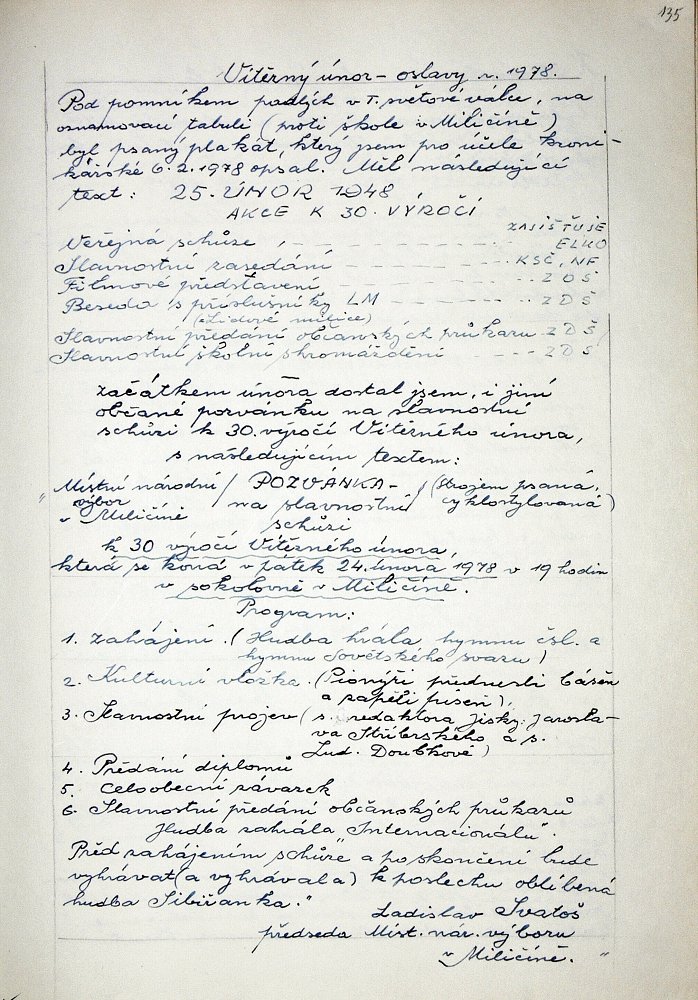 135
Vítězný únor - oslavy r. 1978.
Pod pomníkem padlých v I. světové válce, na
oznamovací tabuli (proti škole v Miličíně)
byl psaný plakát, který jsem pro účele kroni-
kářské 6.2.1978 opsal. Měl následující
text: 25. ÚNOR 1948
AKCE K 30. VÝROČÍ
ZAJIŠŤUJE
Veřejná schůze, - - - - - ELKO
Slavnostní zasedání - - - - - KSČ, NF
Filmové představení - - - - - ZDŠ
Beseda s příslušníky LM - - - - - ZDŠ
(Lidové milice)
Slavnostní předání občanských průkazu - ZDŠ
Slavnostní školní shromáždění - - - ZDŠ
Začátkem února dostal jsem, i jiní
občané pozvánku na slavnostní
schůzi k 30. výročí Vítězného února,
s následujícím textem:
„Místní národní / POZVÁNKA - / (Strojem psaná,
výbor na slavnostní cyklostylovaná)
v Miličíně schůzi
k 30 výročí Vítězného února,
která se koná v pátek 24. února 1978 v 19 hodin
v sokolovně v Miličíně.
Program:
1. Zahájení. (Hudba hrála hymnu čsl. a
hymnu Sovětského svazu)
2. Kulturní vložka. (Pionýři přednesli báseň
a zapěli píseň),
3. Slavnostní projev (s. redaktora Jisky: Jarosla-
va Stříberského a s.
Lud. Doubkové)
4. Předání diplomů
5. Celoobecní závazek
6. Slavnostní předání občanských průkazů
Hudba zahrála „Internacionálu".
Před zahájením schůze a po skončení bude
vyhrávat (a vyhrávala) k poslechu oblíbená
hudba Sibiřanka."
Ladislav Svatoš
předseda Míst. nár. výboru
v Miličíně. "